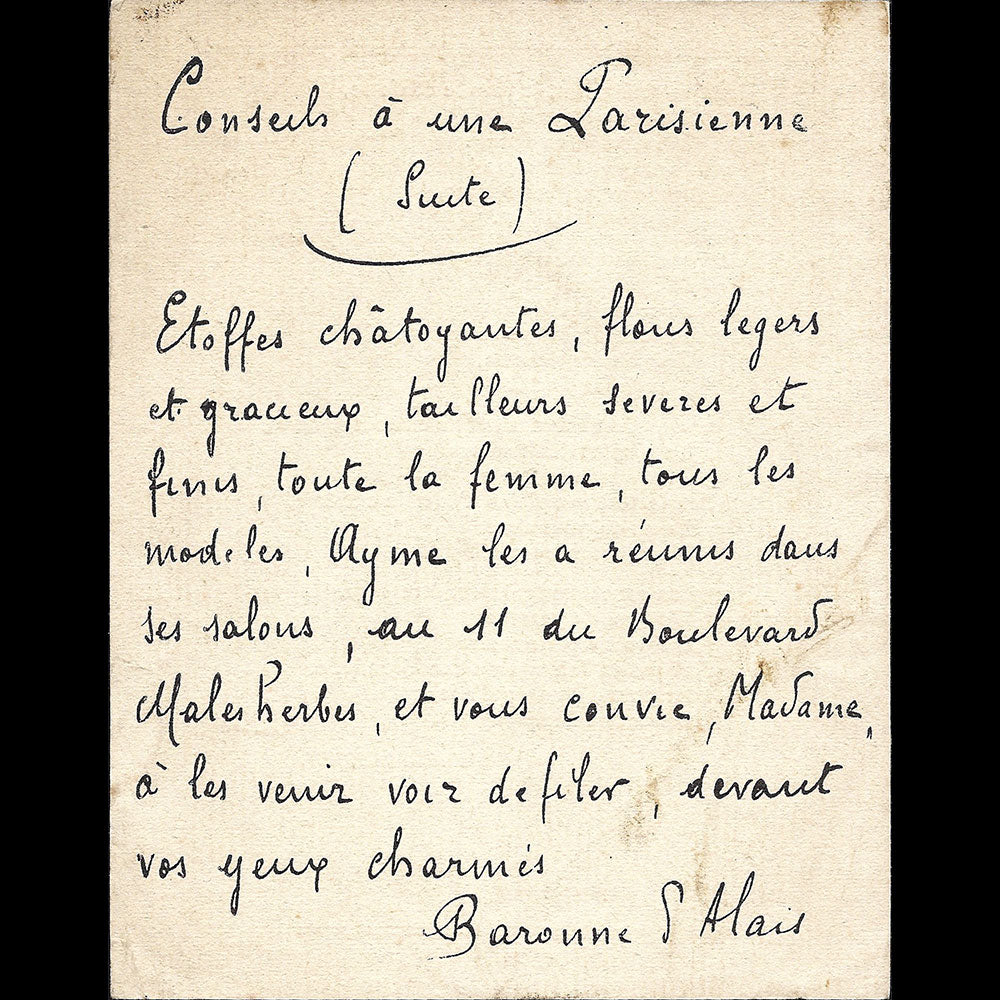 Conseils à une Parisienne
(Suite)
Etoffes châtoyantes, flous legers
et gracieux, tailleurs severes et
finis, toute la femme, tous les
modeles, Ayme les a réunis dans
ses salons, au 11 du Boulevard
Malesherbes, et vous convie, Madame,
à les venir voir defiler, devant
vos yeux charmés
Baronne d'Alais